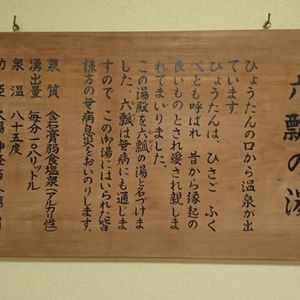 六瓢の湯
ひょうたんの口から温泉が出
ています。
ひょうたんは、ひさご ふく
べとも呼ばれ 昔から縁起の
良いものとされ愛され親しま
れてまいりました。
この湯殿を六瓢の湯と名づけま
した。六瓢は無病にも通じま
すので この御湯にはいられた皆
様方の無病息災をおいのりします。
泉質 含石膏弱食塩泉(アルカリ性)
湧出量 毎分一〇八リットル
泉温 八十五度